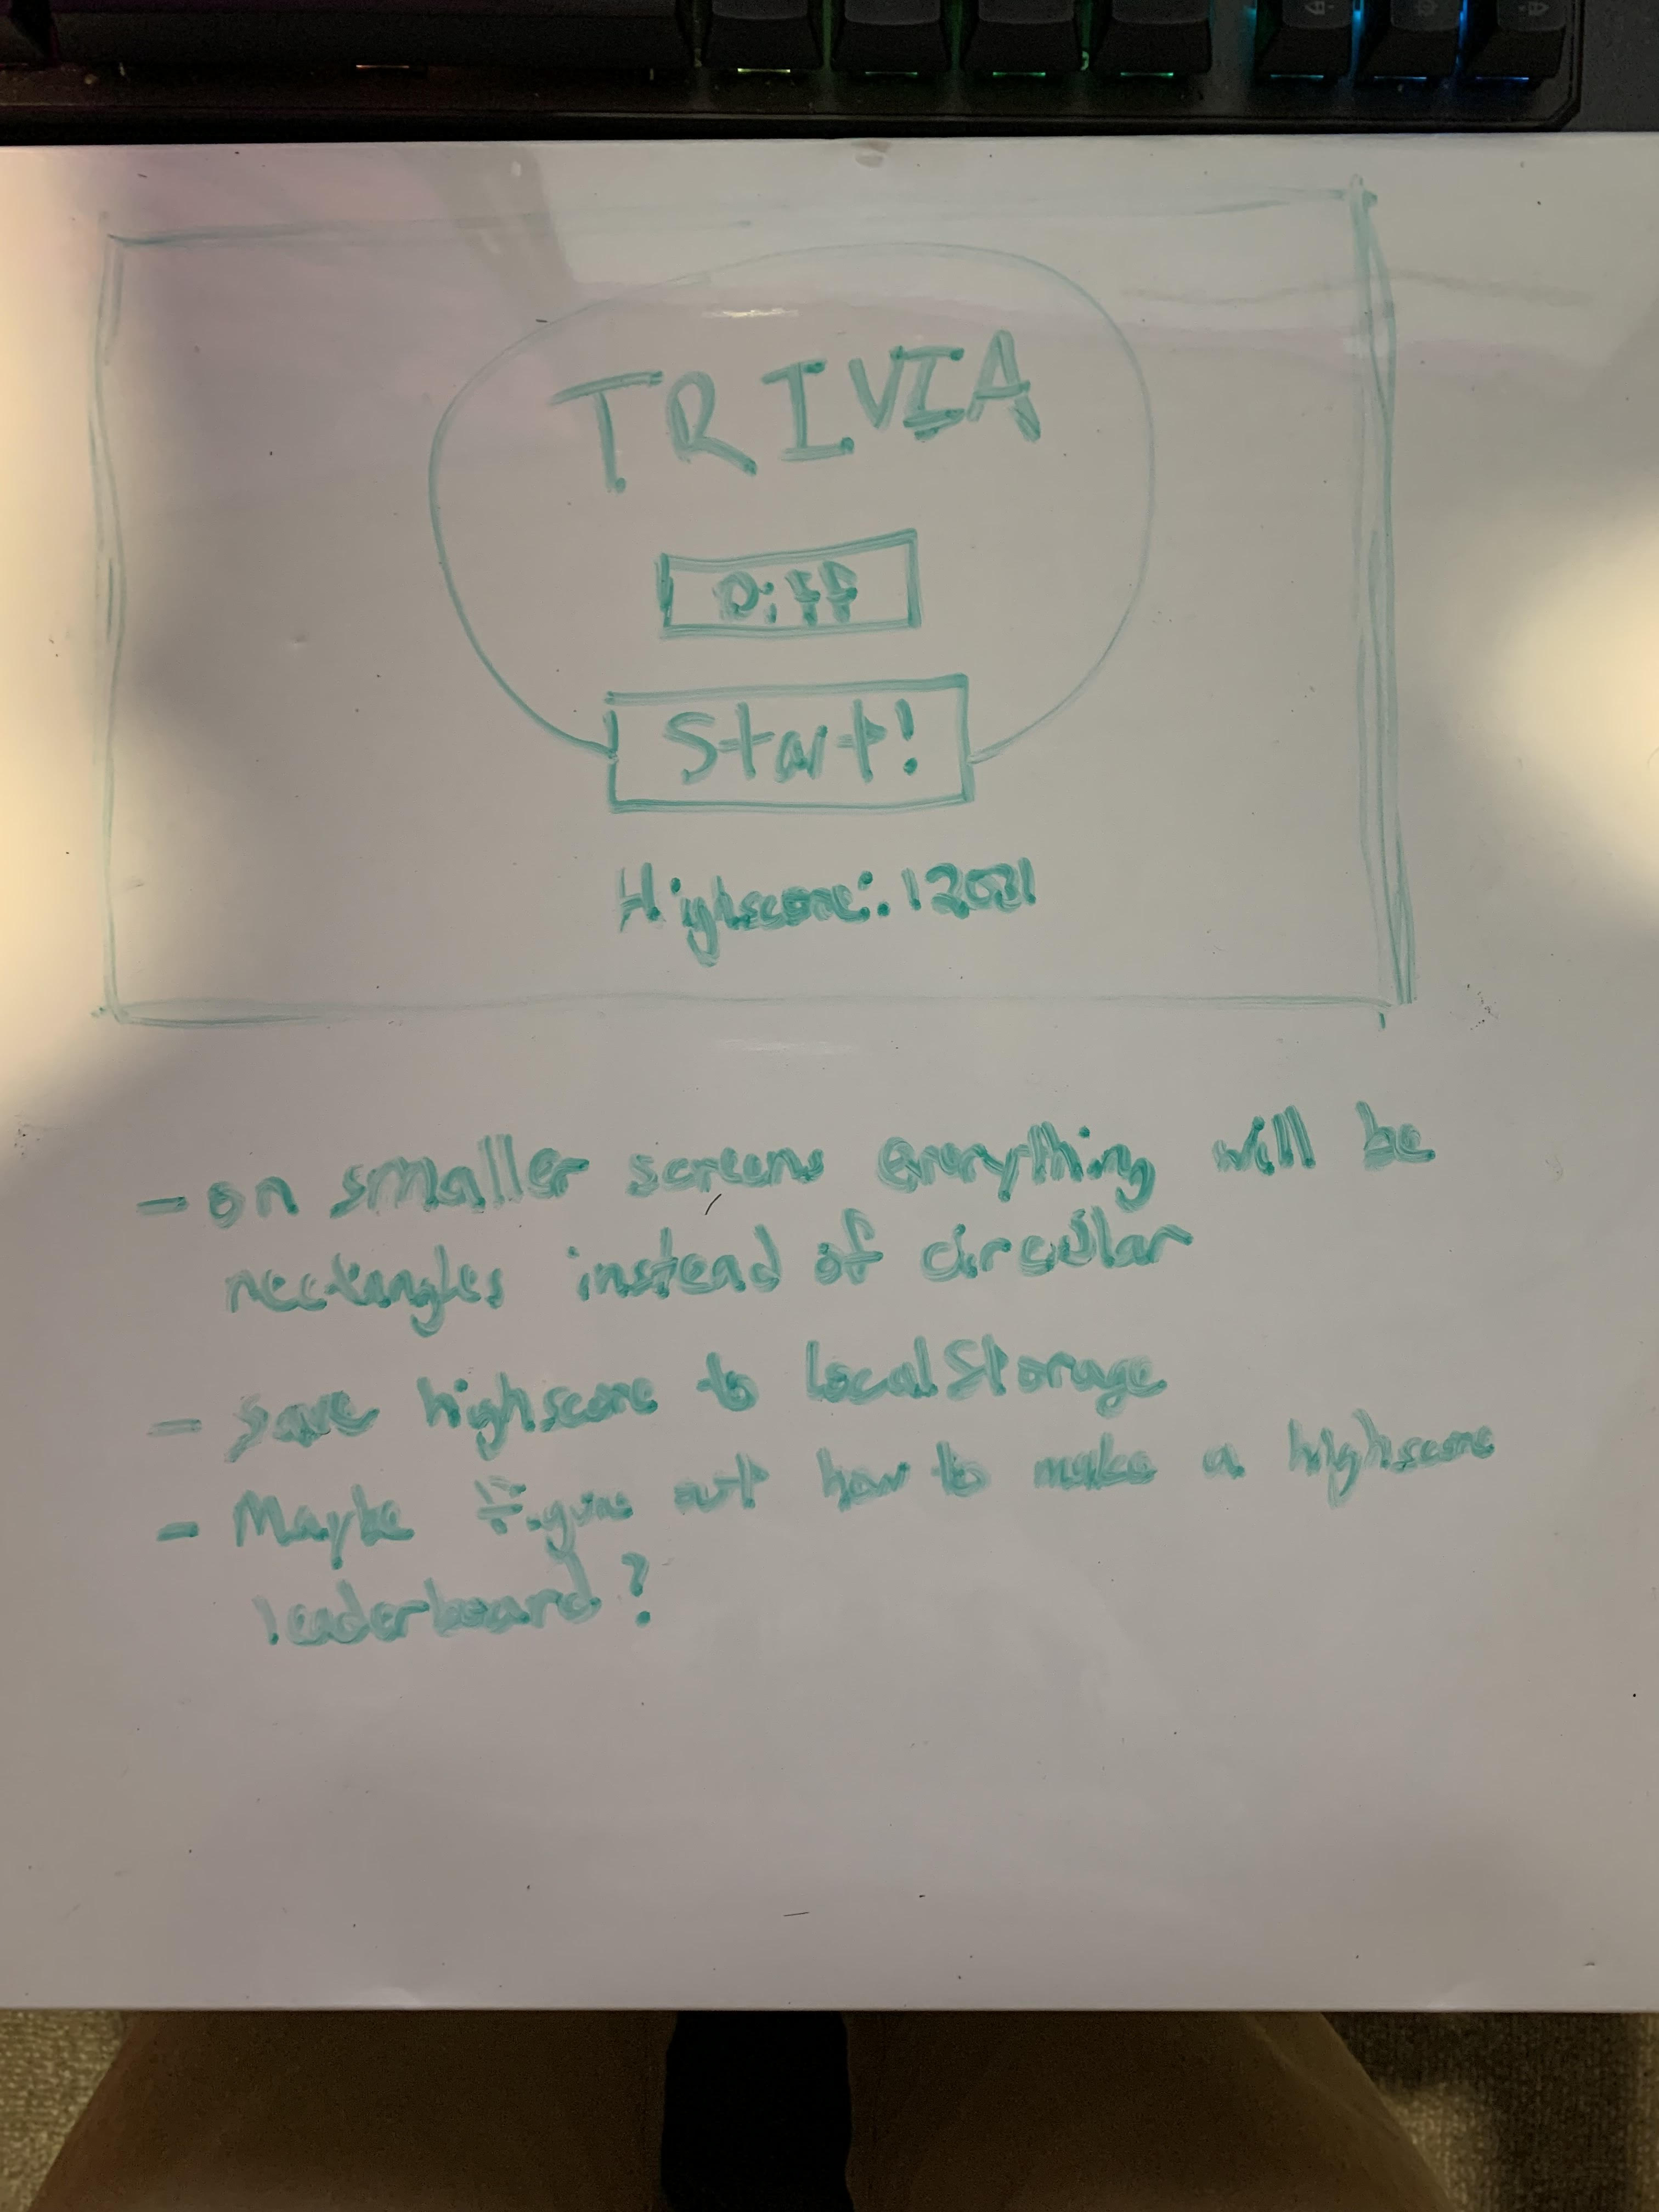 TRIVIA
Diff
Start!
Highscore: 12031
- on smaller screens everything will be
rectangles instead of circular
- save highscore to localStorage
- Maybe figure out how to make a highscore
leaderboard?